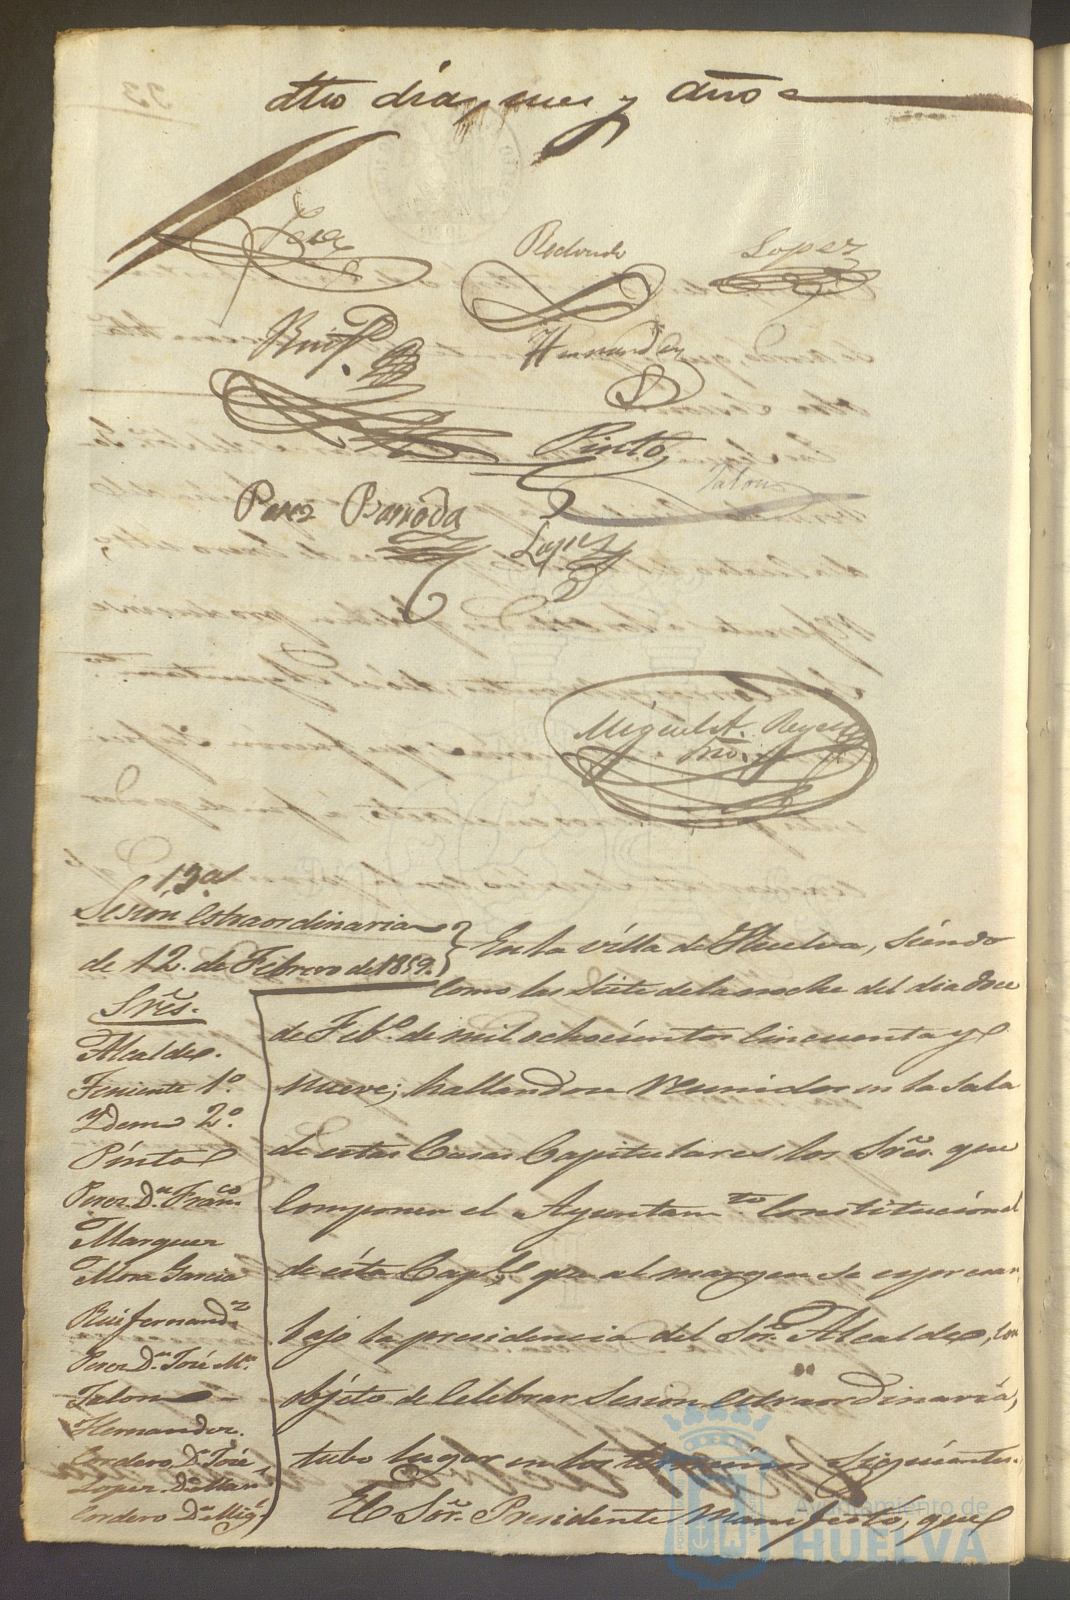 dho dia, mes y año
Redondo
Lopez
Ruifz.
Hernandez
Pinto
Talon
Perez Barroda
Lopez
Miguel A. Reyes
Srio.
13.a
Sesión estraordinaria
de 12. de Febrero de 1859.
Sres.
Alcalde.
Teniente 1.º
Ydem 2.º
Pinto
Perez Dn. Franco
Marquez
Mora Garcia
Ruifernandz
Perez Dn. José Ma.
Talon
Hernandez.
Cordero Dn. José
Lopez Dn. Man
Cordero Dn. Migl.
En la villa de Huelva, siendo
como las siete de la noche del dia doce
de Febo. de mil ochocientos cincuenta y
nueve; hallandose reunidos en la sala
de estas Casas Capitulares los Sres. que
componen el Ayuntamto. Constitucional
de ésta Capl. que al margen se espresan
bajo la presidencia del Sor. Alcalde, con
objeto de celebrar sesion estraordinaria,
tubo lugar en los términos siguientes.
El Sor. Presidente manifestó, que
Ayuntamiento de
HUELVA